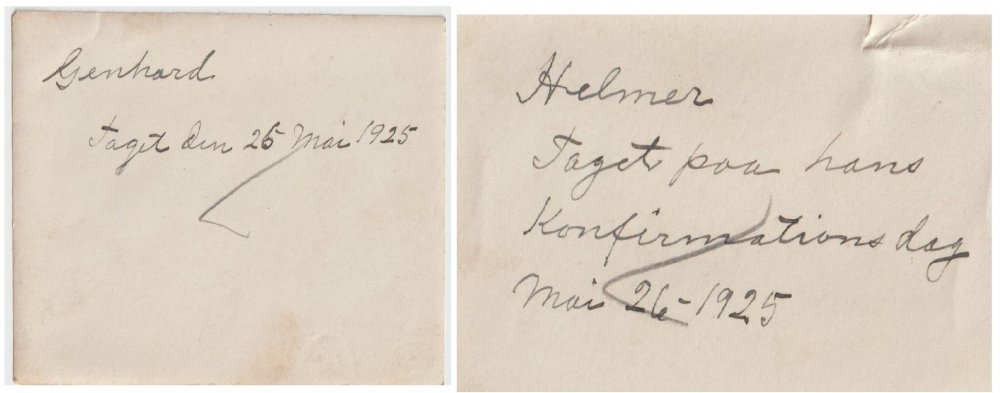 Genhard
Taget den 26 Mai 1925
Helmer
Taget paa hans
Konfirmationsdag
Mai 26-1925